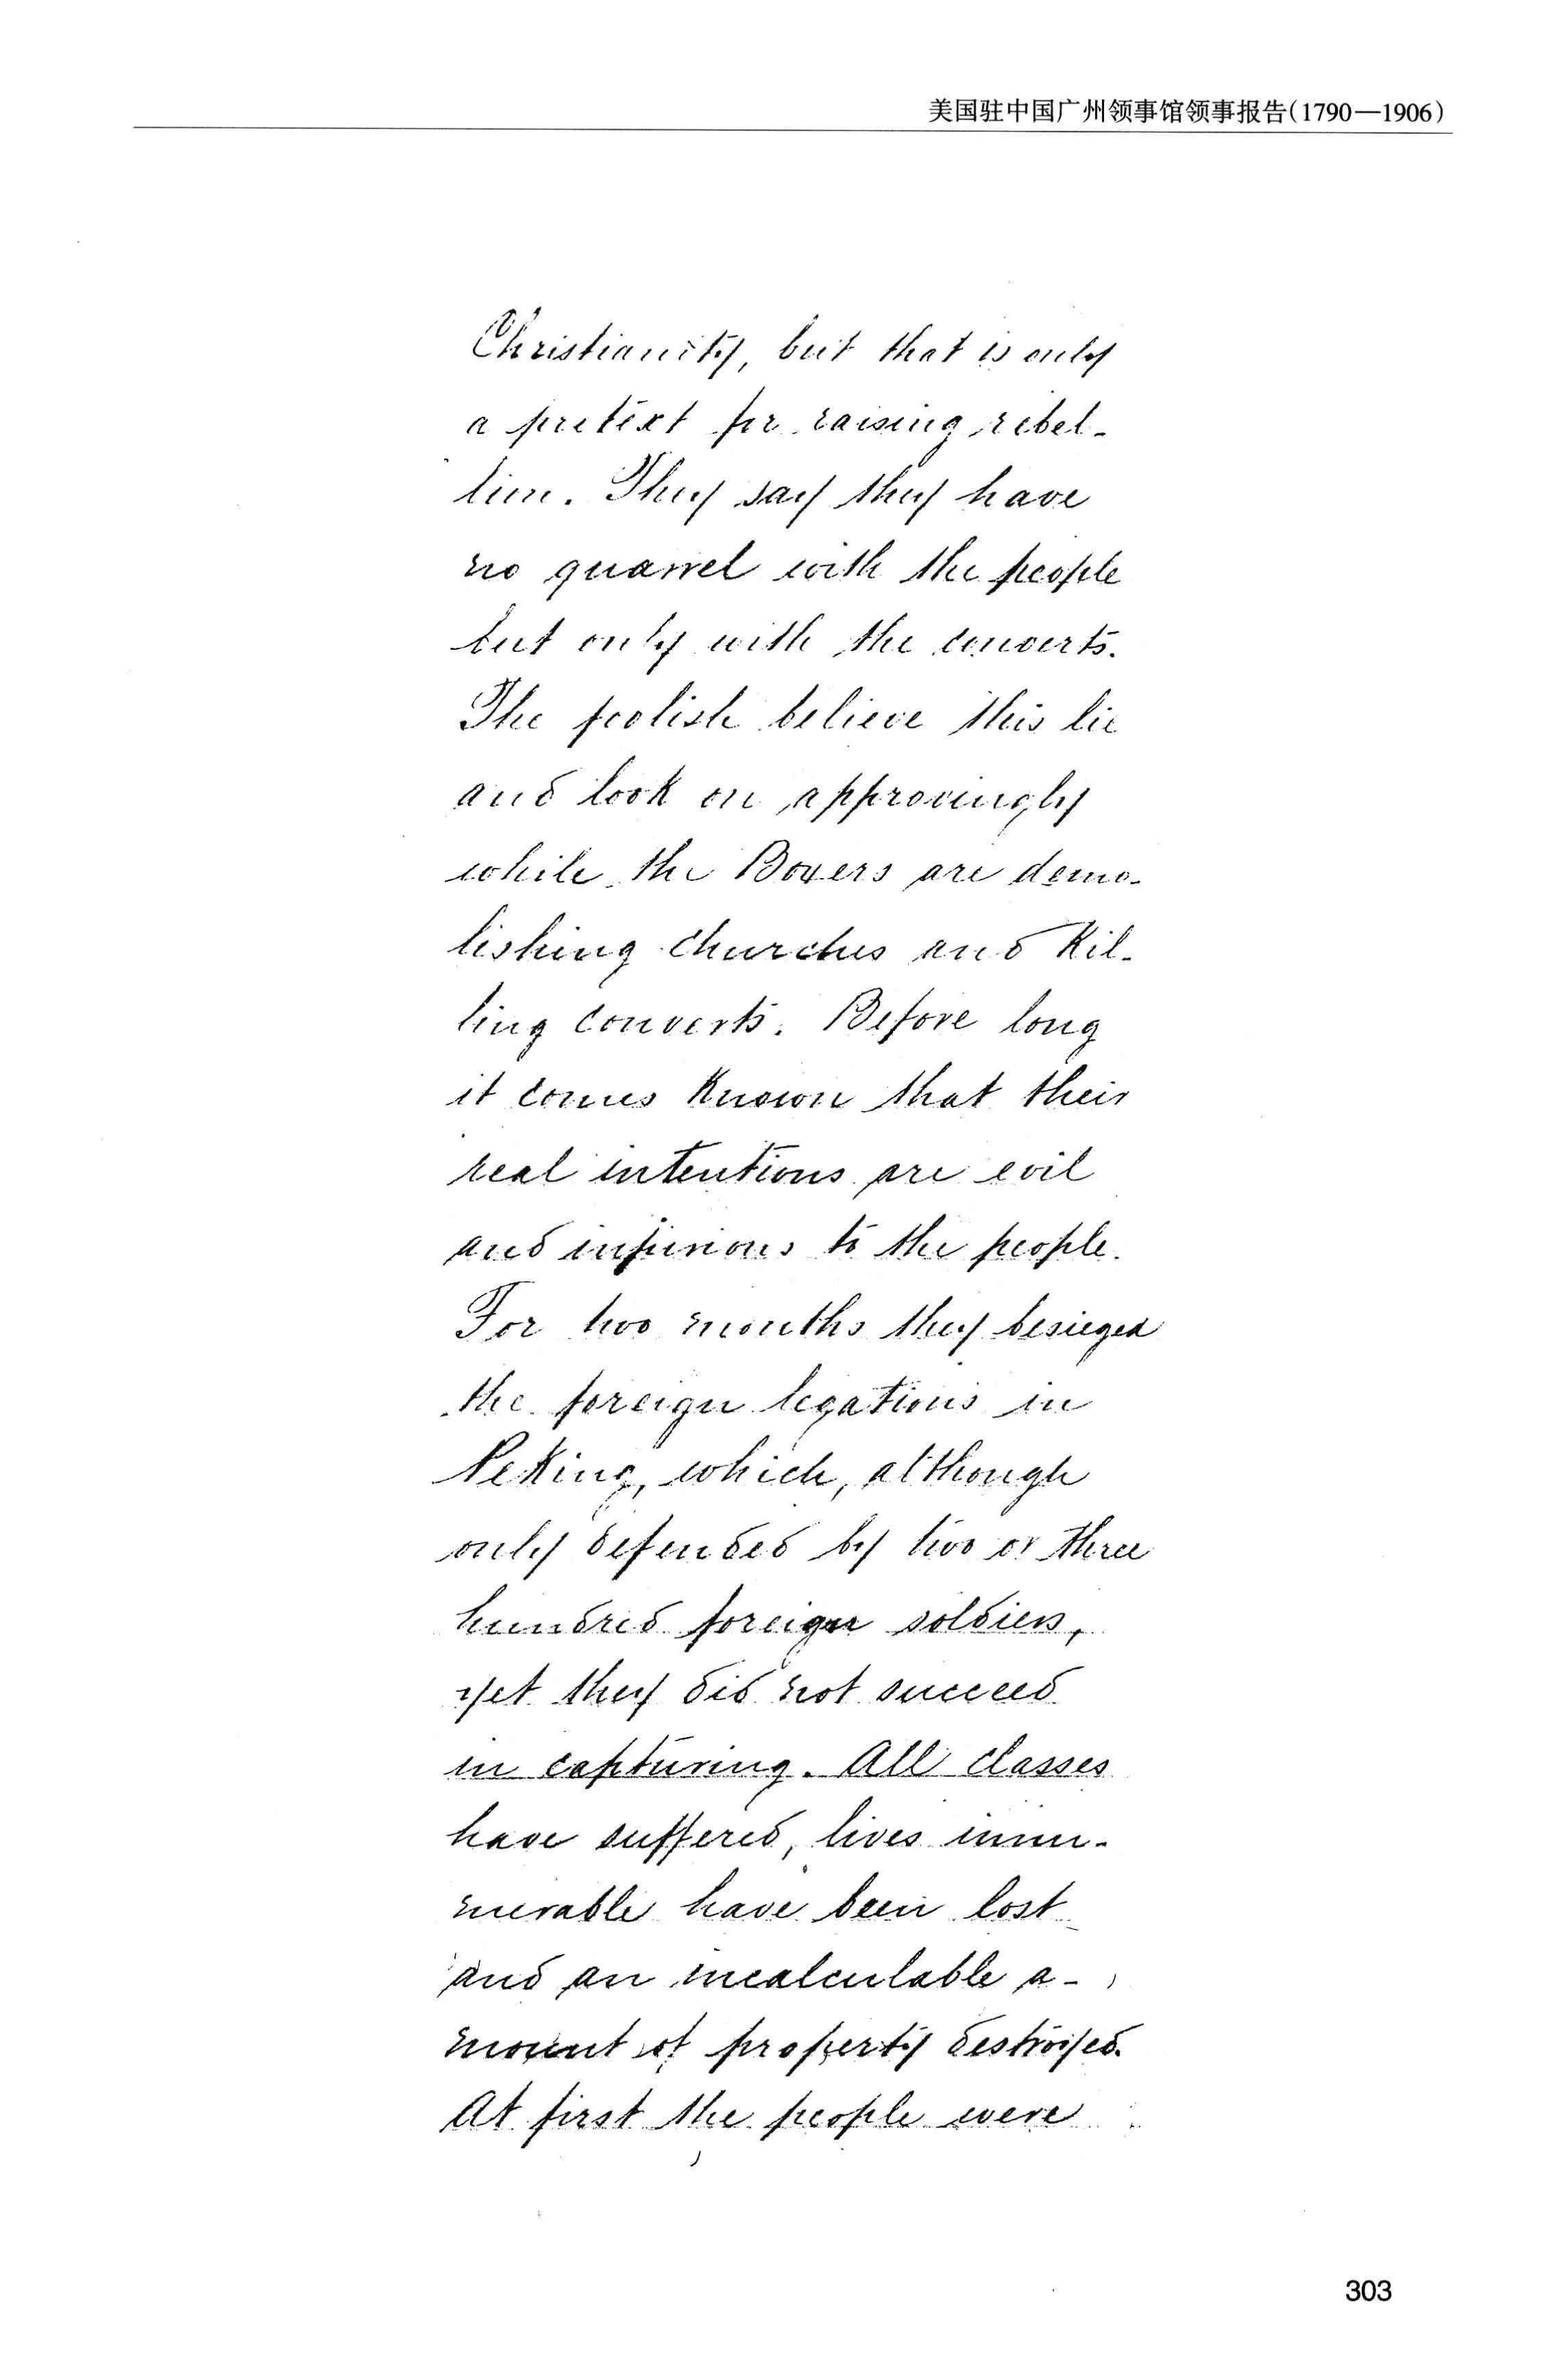 美国驻中国广州领事馆领事报告(1790—1906)
Christianity, but that is only
a pretext for raising rebel-
lion. They say they have
no quarrel with the people
but only with the converts.
The foolish believe this lie
and look on approvingly
while the Boxers are demo-
lishing churches and kil-
ling converts. Before long
it comes known that their
real intentions are evil
and injurious to the people.
For two months they besieged
the foreign legations in
Peking, which, although
only defended by two or three
hundred foreign soldiers,
yet they did not succeed
in capturing. All classes
have suffered, lives innu-
merable have been lost
and an incalculable a-
mount of property destroyed.
At first the people were
303